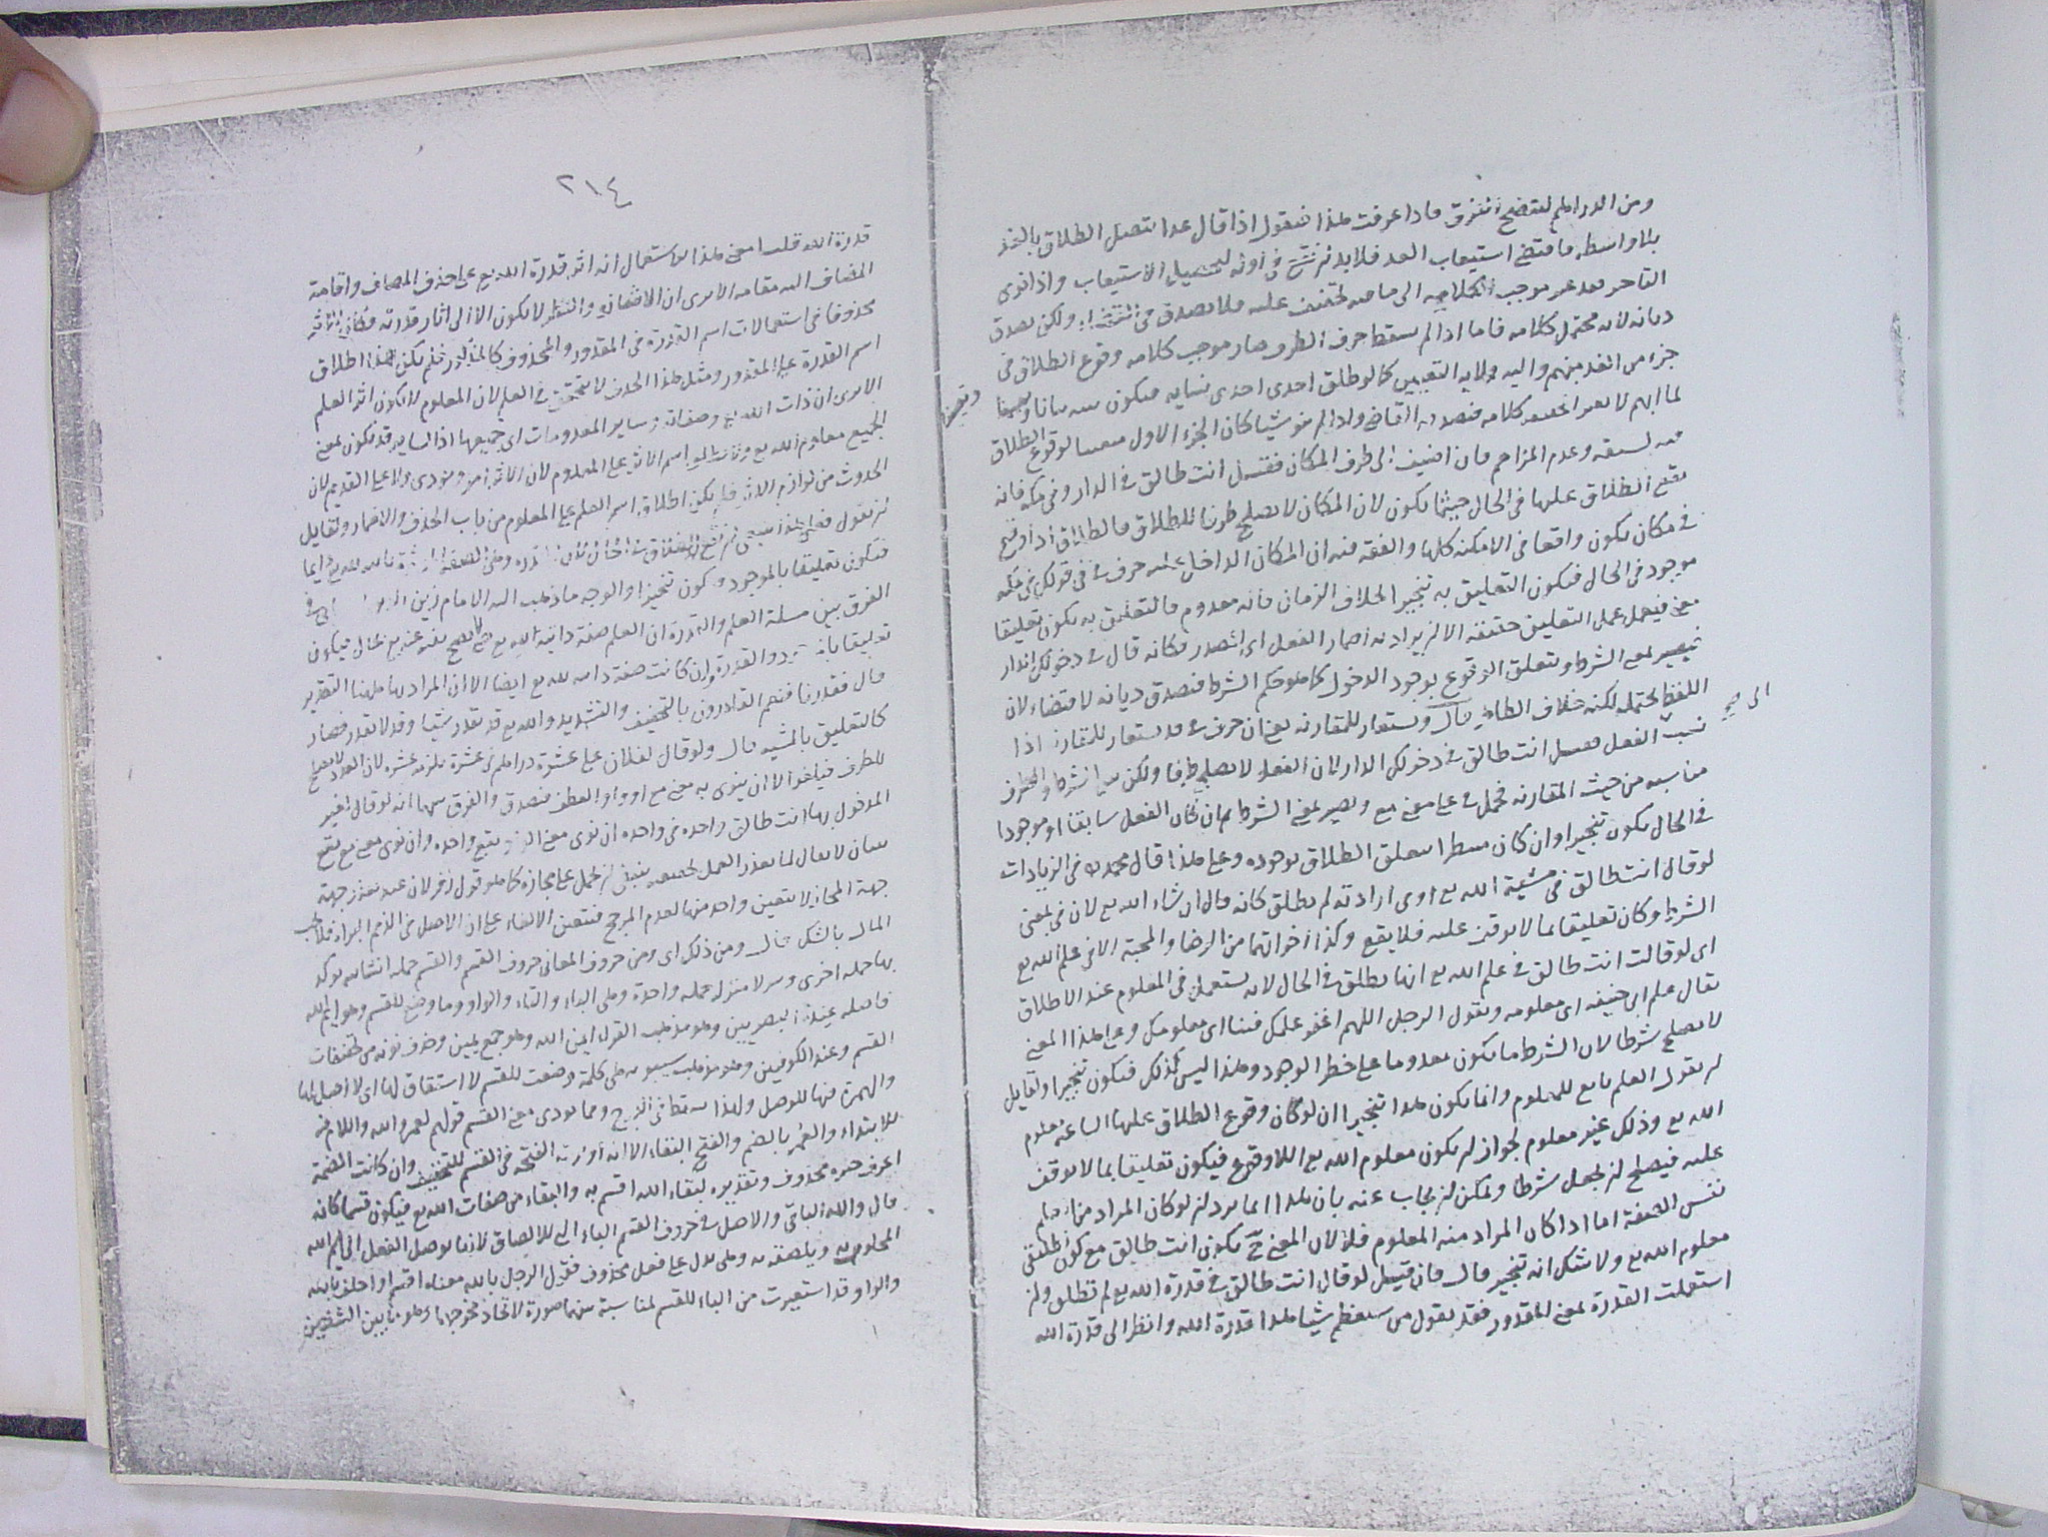 ومن الدراهم لتتضح الفرق فاذا عرفت هذا فنقول اذا قال غدا يتصل الطلاق بالغد
بلا واسطه فاقتضى استيعاب الغد فلابد من وقوعه في اوله ليحصل الاستيعاب واذا نوى
التاخر فقد غير موجب كلامه الى ما فيه تخفيف عليه فلا يصدق في القضاء ولكن يصدق
ديانه لانه محتمل كلامه فاما اذا لم يسقط حرف الظرف صار موجب كلامه وقوع الطلاق في
جزء من الغد مبهم واليه ولايه التعيين كما لو طلق احدى نسايه فيكون بيانا
لما ابهم لا تغييرا لحقيقه كلامه فيصدقه القاضي واذا لم ينو شيا كان الجزء الاول متعينا لوقوع الطلاق
فيه لسبقه وعدم المزاحم فان اضيف الى ظرف المكان فقيل انت طالق في الدار وفي مكه فانه
يقع الطلاق عليها في الحال حيثما يكون لان المكان لا يصلح ظرفا للطلاق فالطلاق اذا وقع
في مكان يكون واقعا في الامكنه كلها والفقه فيه ان المكان الداخل عليه حرف في في قولك في مكه
موجود في الحال فيكون التعليق به تنجيزا بخلاف الزمان فانه معدوم فالتعليق به يكون تعليقا
معنى فيعمل عمل التعليق حقيقه الا ان يراد به اضمار الفعل اي المصدر فكانه قال في دخولك الدار
فيصير بمعنى الشرط ويتعلق الوقوع بوجود الدخول كما هو حكم الشرط فيصدق ديانه لا قضاء لان
اللفظ يحتمله لكنه خلاف الظاهر قال وستعار للمقارنه يعني ان حرف في قد يستعار للمقارنه اذا
نسب الى الفعل فقيل انت طالق في دخولك الدار لان الفعل لا يصلح ظرفا ولكن بين الشرط والظرف
مناسبه من حيث المقارنه فحمل في على معنى مع ويصير بمعنى الشرط ثم ان كان الفعل سابقا او موجودا
في الحال يكون تنجيزا وان كان منتظرا يتعلق الطلاق بوجوده وعلى هذا قال محمد في الزيادات
لو قال انت طالق في مشية الله تع او في ارادته لم يطلق كانه قال ان شاء الله تع لان في بمعنى
الشرط وكان تعليقا بما لا يوقف عليه فلا يقع وكذا اخواتهما من الرضا والمحبة الا في علم الله تع
اي لو قالت انت طالق في علم الله تع انها يطلق في الحال لانه يستعمل في المعلوم عند الاطلاق
يقال علم ابي حنيفه اي معلومه ويقول الرجل اللهم اغفر علمك فينا اي معلومك وعلى هذا المعنى
لا يصلح شرطا لان الشرط ما يكون معدوما على خطر الوجود وهذا ليس كذلك فيكون تنجيزا ولقايل
ان يقول العلم تابع للمعلوم وانما يكون هذا تنجيزا ان لو كان وقوع الطلاق عليها الساعه معلوم
الله تع وذلك غير معلوم لجواز ان يكون معلوم الله تع اللاوقوع فيكون تعليقا بما لا يوقف
عليه فيصلح ان يجعل شرطا ويمكن ان يجاب عنه بان هذا انما يرد ان لو كان المراد من العلم
نفس الصفة اما اذا كان المراد منه المعلوم فلا لان المعنى ح يكون انت طالق مع كون طلقتى
معلوم الله تع ولا شك انه تنجيز قال فان قيل لو قال انت طالق في قدرة الله تع لم تطلق ولو
استعملت القدرة بمعنى المقدور فقد يقول من يستعظم شيا هذا قدرة الله وانظر الى قدرة الله
الى صح
٢١٤
قدرة الله قلت معنى هذا الاستعمال انه اثر قدرة الله تع على حذف المضاف واقامة
المضاف اليه مقامه الا يرى ان الاستعظام والنظر لا يكون الا الى اثار قدرته فكان الاثر
محذوفا في استعمالات اسم القدرة في المقدور والمحذوف كالمذكور فلم يكن هذا اطلاق
اسم القدرة على المقدور ومثل هذا الحذف لا يتحقق في العلم لان المعلوم لا يكون اثر العلم
الا يرى ان ذات الله تع وصفاته وساير المعدومات اي جميعها اذ الساير قد يكون بمعنى
الجميع معلوم الله تع ولا يطلق اسم الاثر على المعلوم لان الاثر امر وجودي ولا على القديم لان
الحدوث من لوازم الاثر فلم يكن اطلاق اسم العلم على المعلوم من باب الحذف والاضمار ولقايل
ان يقول فعلى هذا ينبغي ان يقع الطلاق في الحال لان القدره
فيكون تعليقا بالموجود فيكون تنجيزا والوجه ما ذهب اليه الامام زين الدين
الفرق بين مسلة العلم والقدرة ان العلم صفة ذاتية لله تع لا يصح نفيه عنه تع بحال فيكون
تعليقا والقدرة وان كانت صفة ذاتيه لله تع ايضا الا ان المراد بها ههنا التقدير
قال فقدرنا فنعم القادرون بالتخفيف والتشديد والله تع قد يقدر شيا وقد لا يقدر فصار
كالتعليق بالمشيه قال ولو قال لفلان علي عشرة دراهم في عشرة يلزمه عشره لان العدد لا يصلح
للظرف فيلغو الا ان ينوى به معنى مع او واو العطف فيصدق والفرق بينهما انه لو قال لغير
المدخول بها انت طالق واحده في واحده ان نوى معنى الواو يقع واحده وان نوى معنى مع يقع
ثنتان لا يقال لما تعذر العمل بحقيقته ينبغي ان يحمل على مجازه كما هو قول زفر لان عند تعذر جهة
جهة المجاز لا يتعين واحد منها لعدم المرجح فتعين الالغاء على ان الاصل في الذمم البراءة فلا يجب
المال بالشك قال ومن ذلك اي ومن حروف المعاني حروف القسم والقسم جمله انشائيه يوكد
بها جمله اخرى وينزلا منزله جمله واحدة وهي الباء والتاء والواو وما وضع للقسم وهو ايم الله
فاصله عند البصريين وهو مذهب الفراء ايمن الله وهو جمع يمين وحذف نونه من تخفيفات
القسم وعند الكوفيين وهو مذهب سيبويه هي كلمة وضعت للقسم لا اشتقاق لها اي لا اصل لها
والهمزة فيها للوصل ولهذا يسقط في الدرج ومما يودى معنى القسم قولهم لعمر الله واللام فيه
للابتداء والعمر بالضم والفتح البقاء الا انه اوثرت الفتحه في القسم للتخفيف وان كانت الضمة
اعرف خبره محذوف وتقديره لبقاء الله اقسم به والبقاء من صفات الله تع فيكون قسما كانه
قال والله الباقي والاصل في حروف القسم الباء التي للالصاق لانها توصل الفعل الى اسم الله
المحلوف به ويلصقه به وهي تدل على فعل محذوف فقول الرجل بالله معناه اقسم او احلف بالله
والواو قد استعيرت من الباء للقسم لمناسبة بينهما صورة لاتحاد مخرجهما وهو ما بين الشفتين